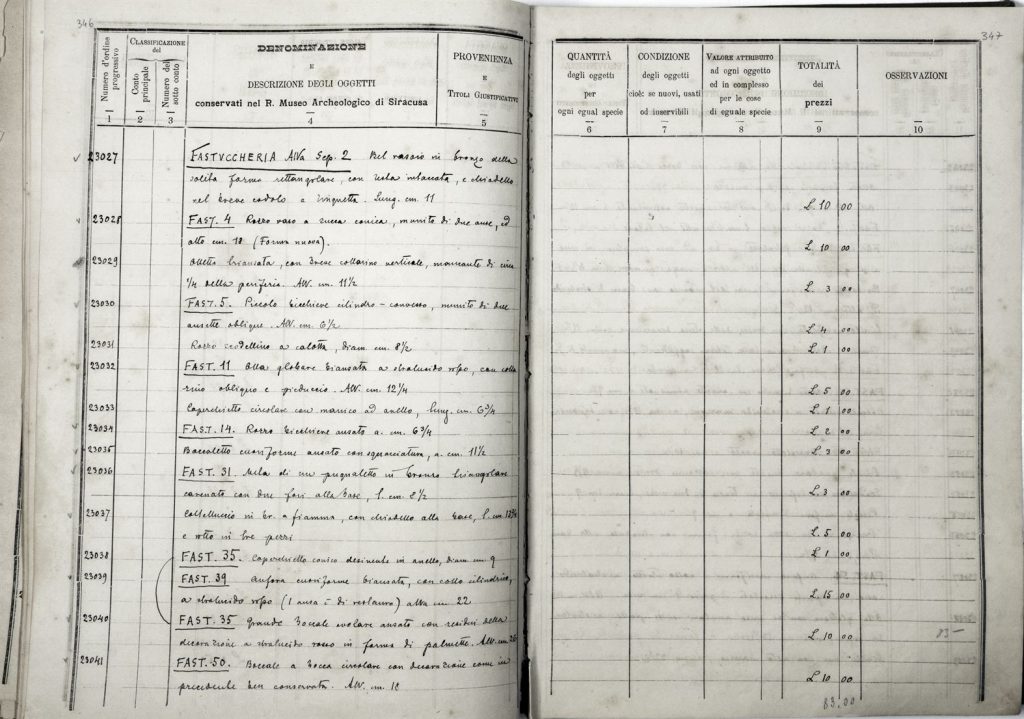 346
Numero d'ordine progressivo
CLASSIFICAZIONE del
Conto principale
Numero del sotto conto
DENOMINAZIONE
E
DESCRIZIONE DEGLI OGGETTI
conservati nel R. Museo Archeologico di Siracusa
PROVENIENZA
E
TITOLI GIUSTIFICATIVI
1 2 3 4 5
23027 FASTUCCHERIA Sep. 2 Bel rasoio in bronzo della
solita forma rettangolare, con testa intaccata, e chiodello
nel breve codolo a linguetta. Lung. cm. 11
23028 FAST. 4 Rozzo vaso a zucca conica, munito di due anse, ed
alto cm. 18 (Forma nuova).
23029 Olletta biansata, con breve collarino verticale, mancante di circa
1/4 della periferia. Alt. cm. 11½
23030 FAST. 5. Piccolo bicchiere cilindro-convesso, munito di due
ansette oblique. Alt. cm. 6½
23031 Rozzo scodellino a calotta, diam. cm. 8½
23032 FAST. 11 Olla globare biansata a stralucido rosso, con colla
rino obliquo e pieduccio. Alt. cm. 12¼
23033 Coperchietto circolare con manico ad anello, lung. cm. 6¾
23034 FAST. 14. Rozzo bicchiere ansato a. cm. 6¾
23035 Boccaletto cuoriforme ansato con sguanciatura, a. cm. 11½
23036 FAST. 31. Metà di un pugnaletto in bronzo triangolare
carenato con due fori alla base, l. cm. 8½
23037 Coltelluccio in br. a fiamma, con chiodello alla base, l. cm
e rotto in tre pezzi
23038 FAST. 35. Coperchietto conico desinente in anello, diam cm 9
23039 FAST. 39 Anfora cuoriforme biansata, con collo cilindrico,
a stralucido rosso (1 ansa è di restauro) alta cm 22
23040 FAST. 35 Grande boccale ovolare ansato con residui della
decorazione a stralucido rosso in forma di palmette. Alt. cm
23041 FAST. 50. Boccale a bocca circolare con decorazione come il
precedente ben conservata. Alt. cm. 18
347
QUANTITÀ
degli oggetti
per
ogni egual specie
CONDIZIONE
degli oggetti
cioè: se nuovi, usati
od inservibili
VALORE ATTRIBUITO
ad ogni oggetto
ed in complesso
per le cose
di eguale specie
TOTALITÀ
dei
prezzi
OSSERVAZIONI
6 7 8 9 10
L. 10 00
L. 10 00
L. 3 00
L. 4 00
L. 1 00
L. 5 00
L. 1 00
L. 2 00
L. 3 00
L. 3 00
L. 5 00
L. 1 00
L. 15 00
L. 10 00
83-
L. 10 00
83.00